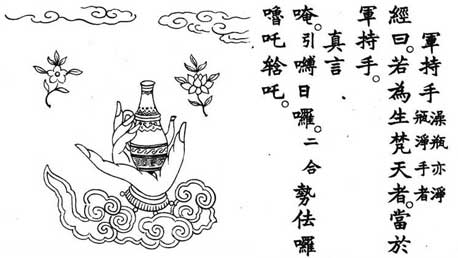 軍持手 澡瓶亦淨
瓶淨手者
經曰。若為生梵天者。當於
軍持手。
真言
唵。引嚩日囉。二合勢佉囉
嚕吒吒。